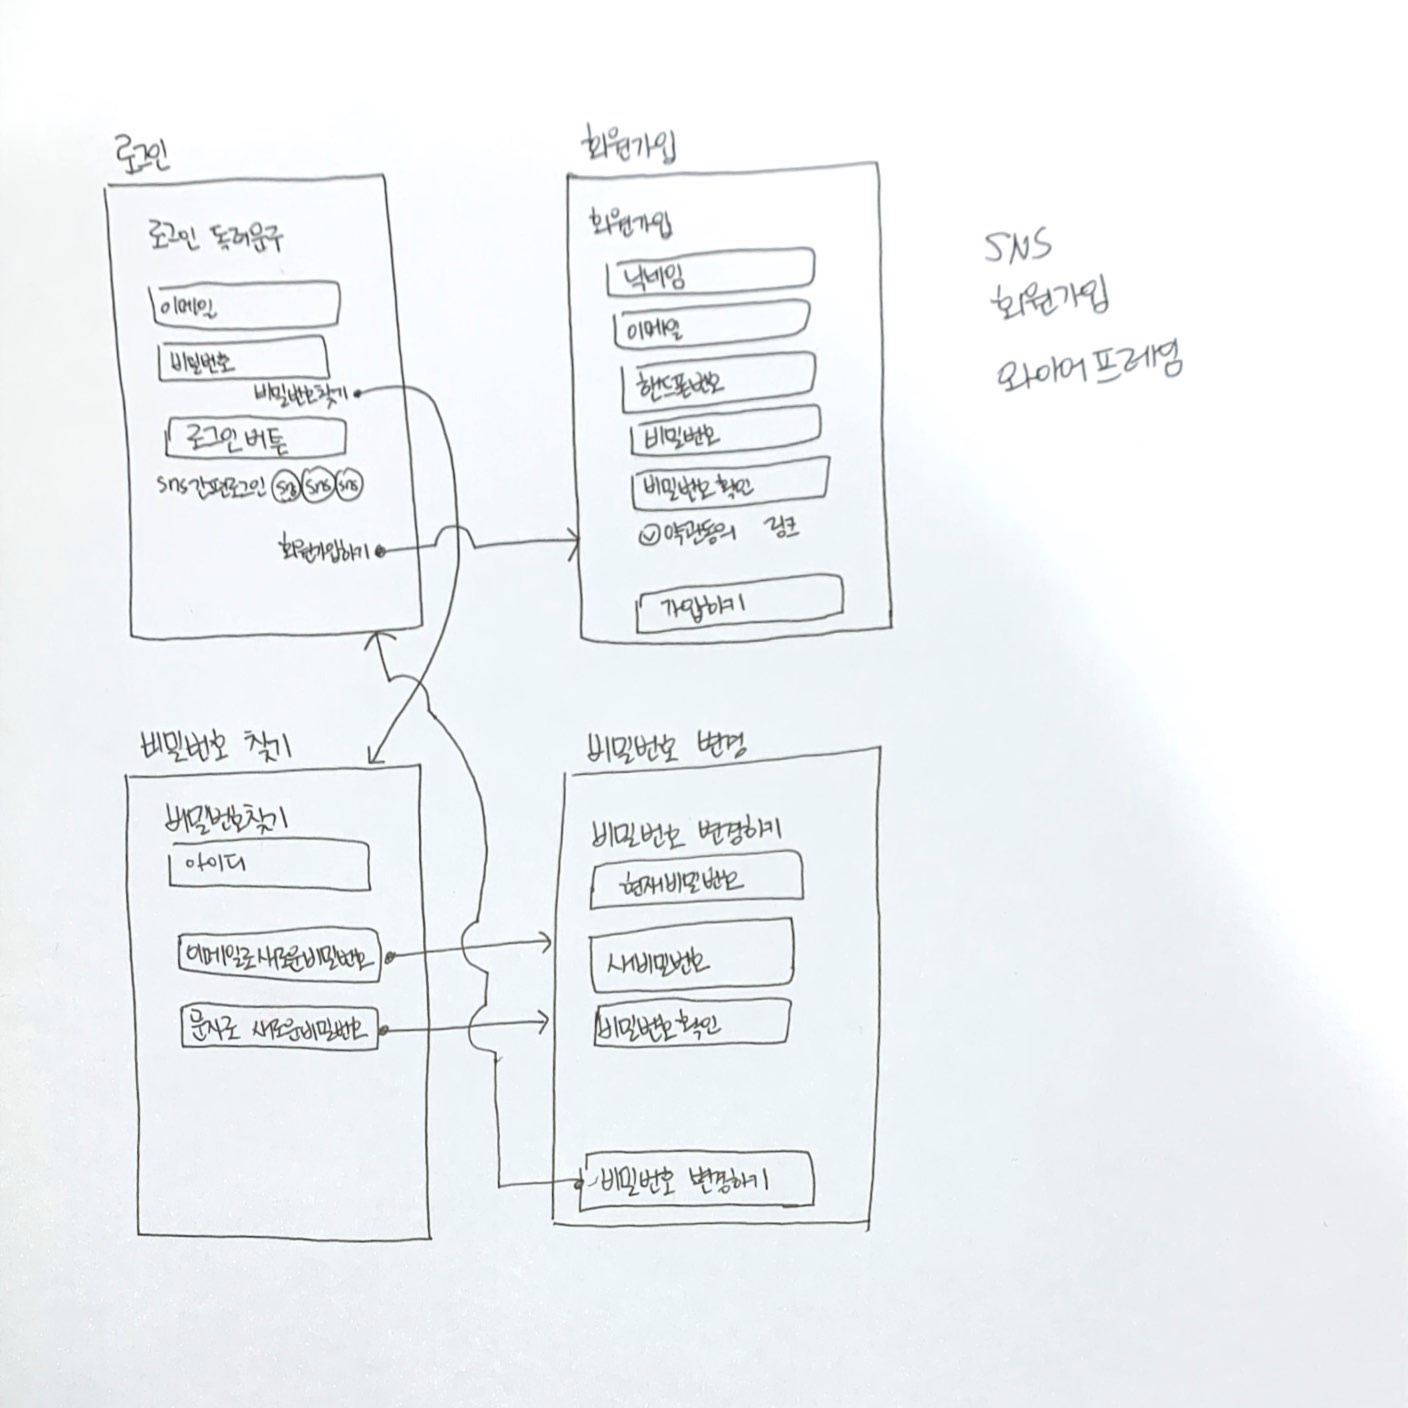 로그인
로그인 독려문구
이메일
비밀번호
비밀번호찾기
로그인 버튼
sns간편로그인 sns sns sns
회원가입하기
회원가입
회원가입
닉네임
이메일
핸드폰번호
비밀번호
비밀번호 확인
약관동의 링크
가입하기
SNS
회원가입
와이어프레임
비밀번호 찾기
비밀번호찾기
아이디
이메일로새로운비밀번호
문자로 새로운비밀번호
비밀번호 변경
비밀번호 변경하기
현재비밀번호
새비밀번호
비밀번호 확인
비밀번호 변경하기